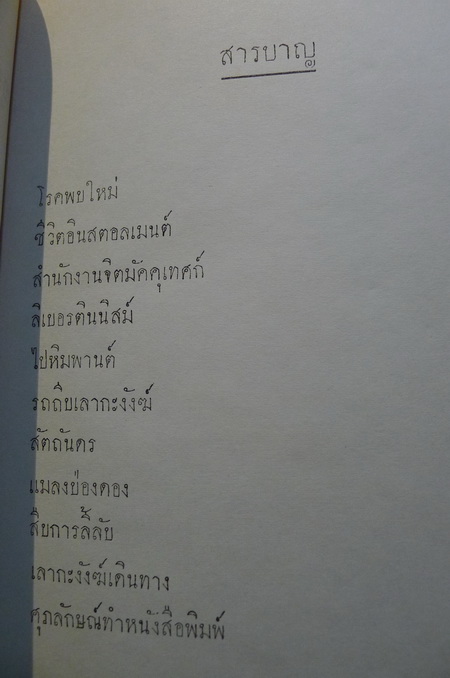 สารบาญ
โรคพยใหม่
ชีวิตอินสตอลเมนต์
สำนักงานจิตมัคคุเทศก์
ลิเบอรตินนิสม์
ไปหิมพานต์
รถถีบเลากะงังฆ์
สัตถันดร
แมลงย่องดอง
สืบการลี้ลัย
เลากะงังฆ์เดินทาง
ศุภลักษณ์ทำหนังสือพิมพ์